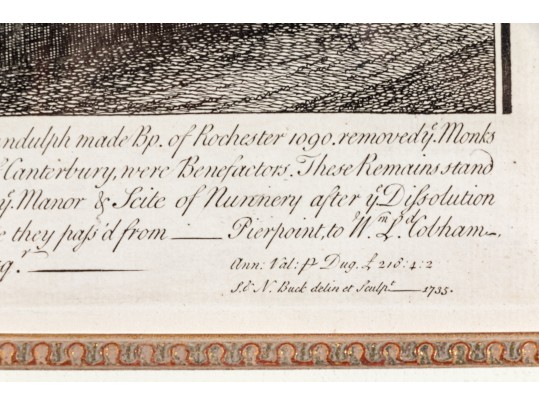 ndulph made Bp. of Rochester 1090. removed yͤ. Monks
Canterbury, were Benefactors. These Remains stand
yͤ. Manor & Scite of Nunnery after yͤ Dissolution
they paſs'd from —— Pierpoint, to Wᵐ. Lᵈ. Cobham
Ann: Val: ꝑ Dug. £ 218:4:2
S. & N. Buck delin et Sculpᵗ —— 1735.